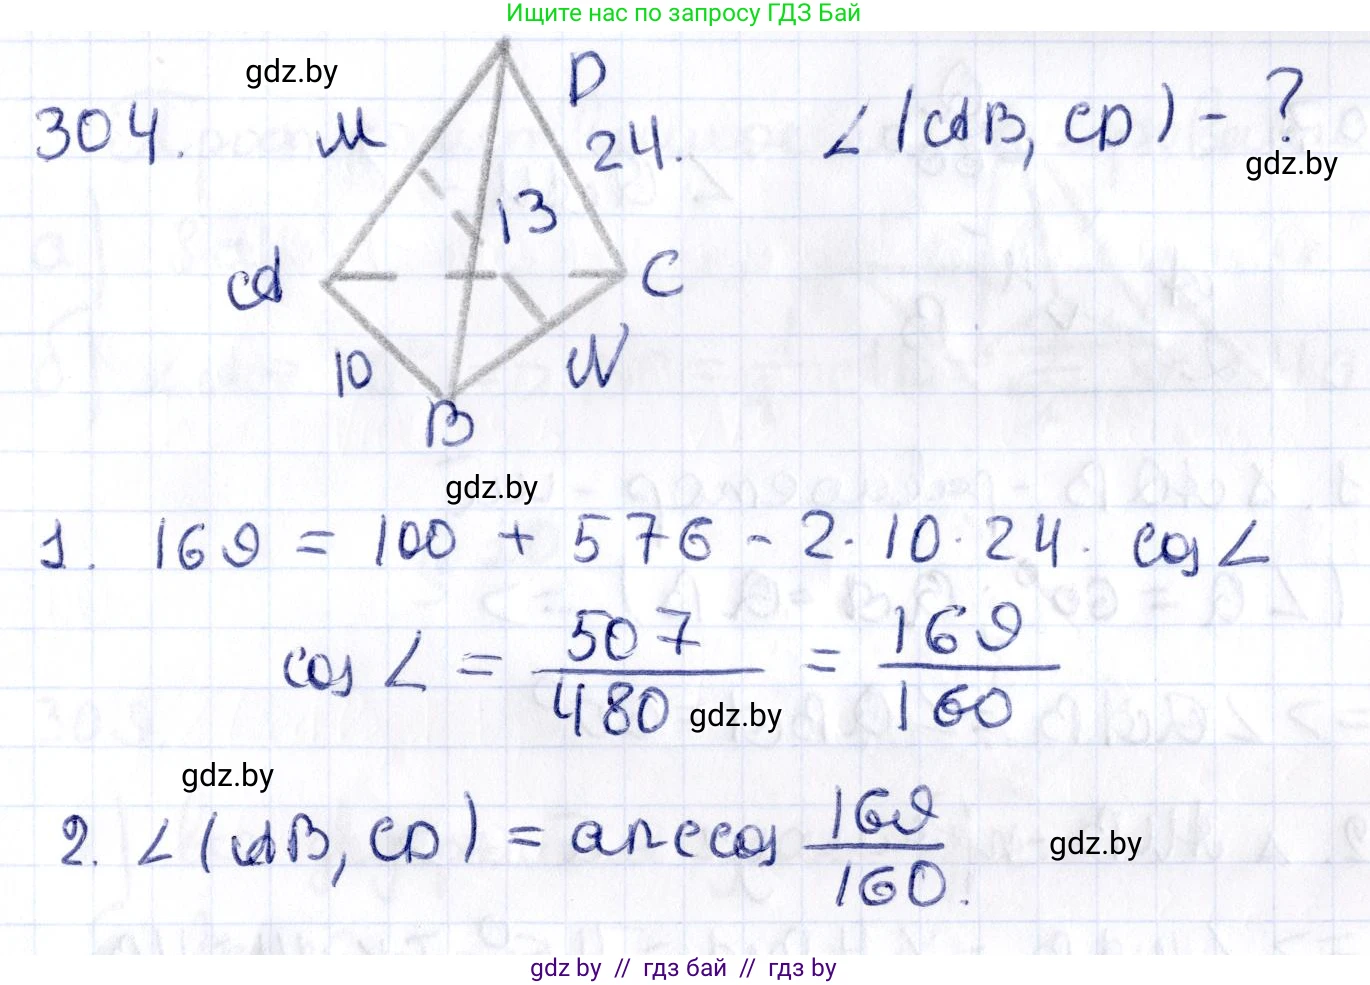 Ищите нас по запросу ГДЗ Бай
gdz.by
304.
M
D
24.
∠(AB, CD) - ?
gdz.by
13
A
C
10
N
B
gdz.by
1. 169 = 100 + 576 - 2·10·24· cos∠
cos∠ = 507/480 = 169/160
gdz.by
gdz.by
2. ∠(AB, CD) = arccos 169/160.
gdz.by
gdz by // гдз бай // гдз by